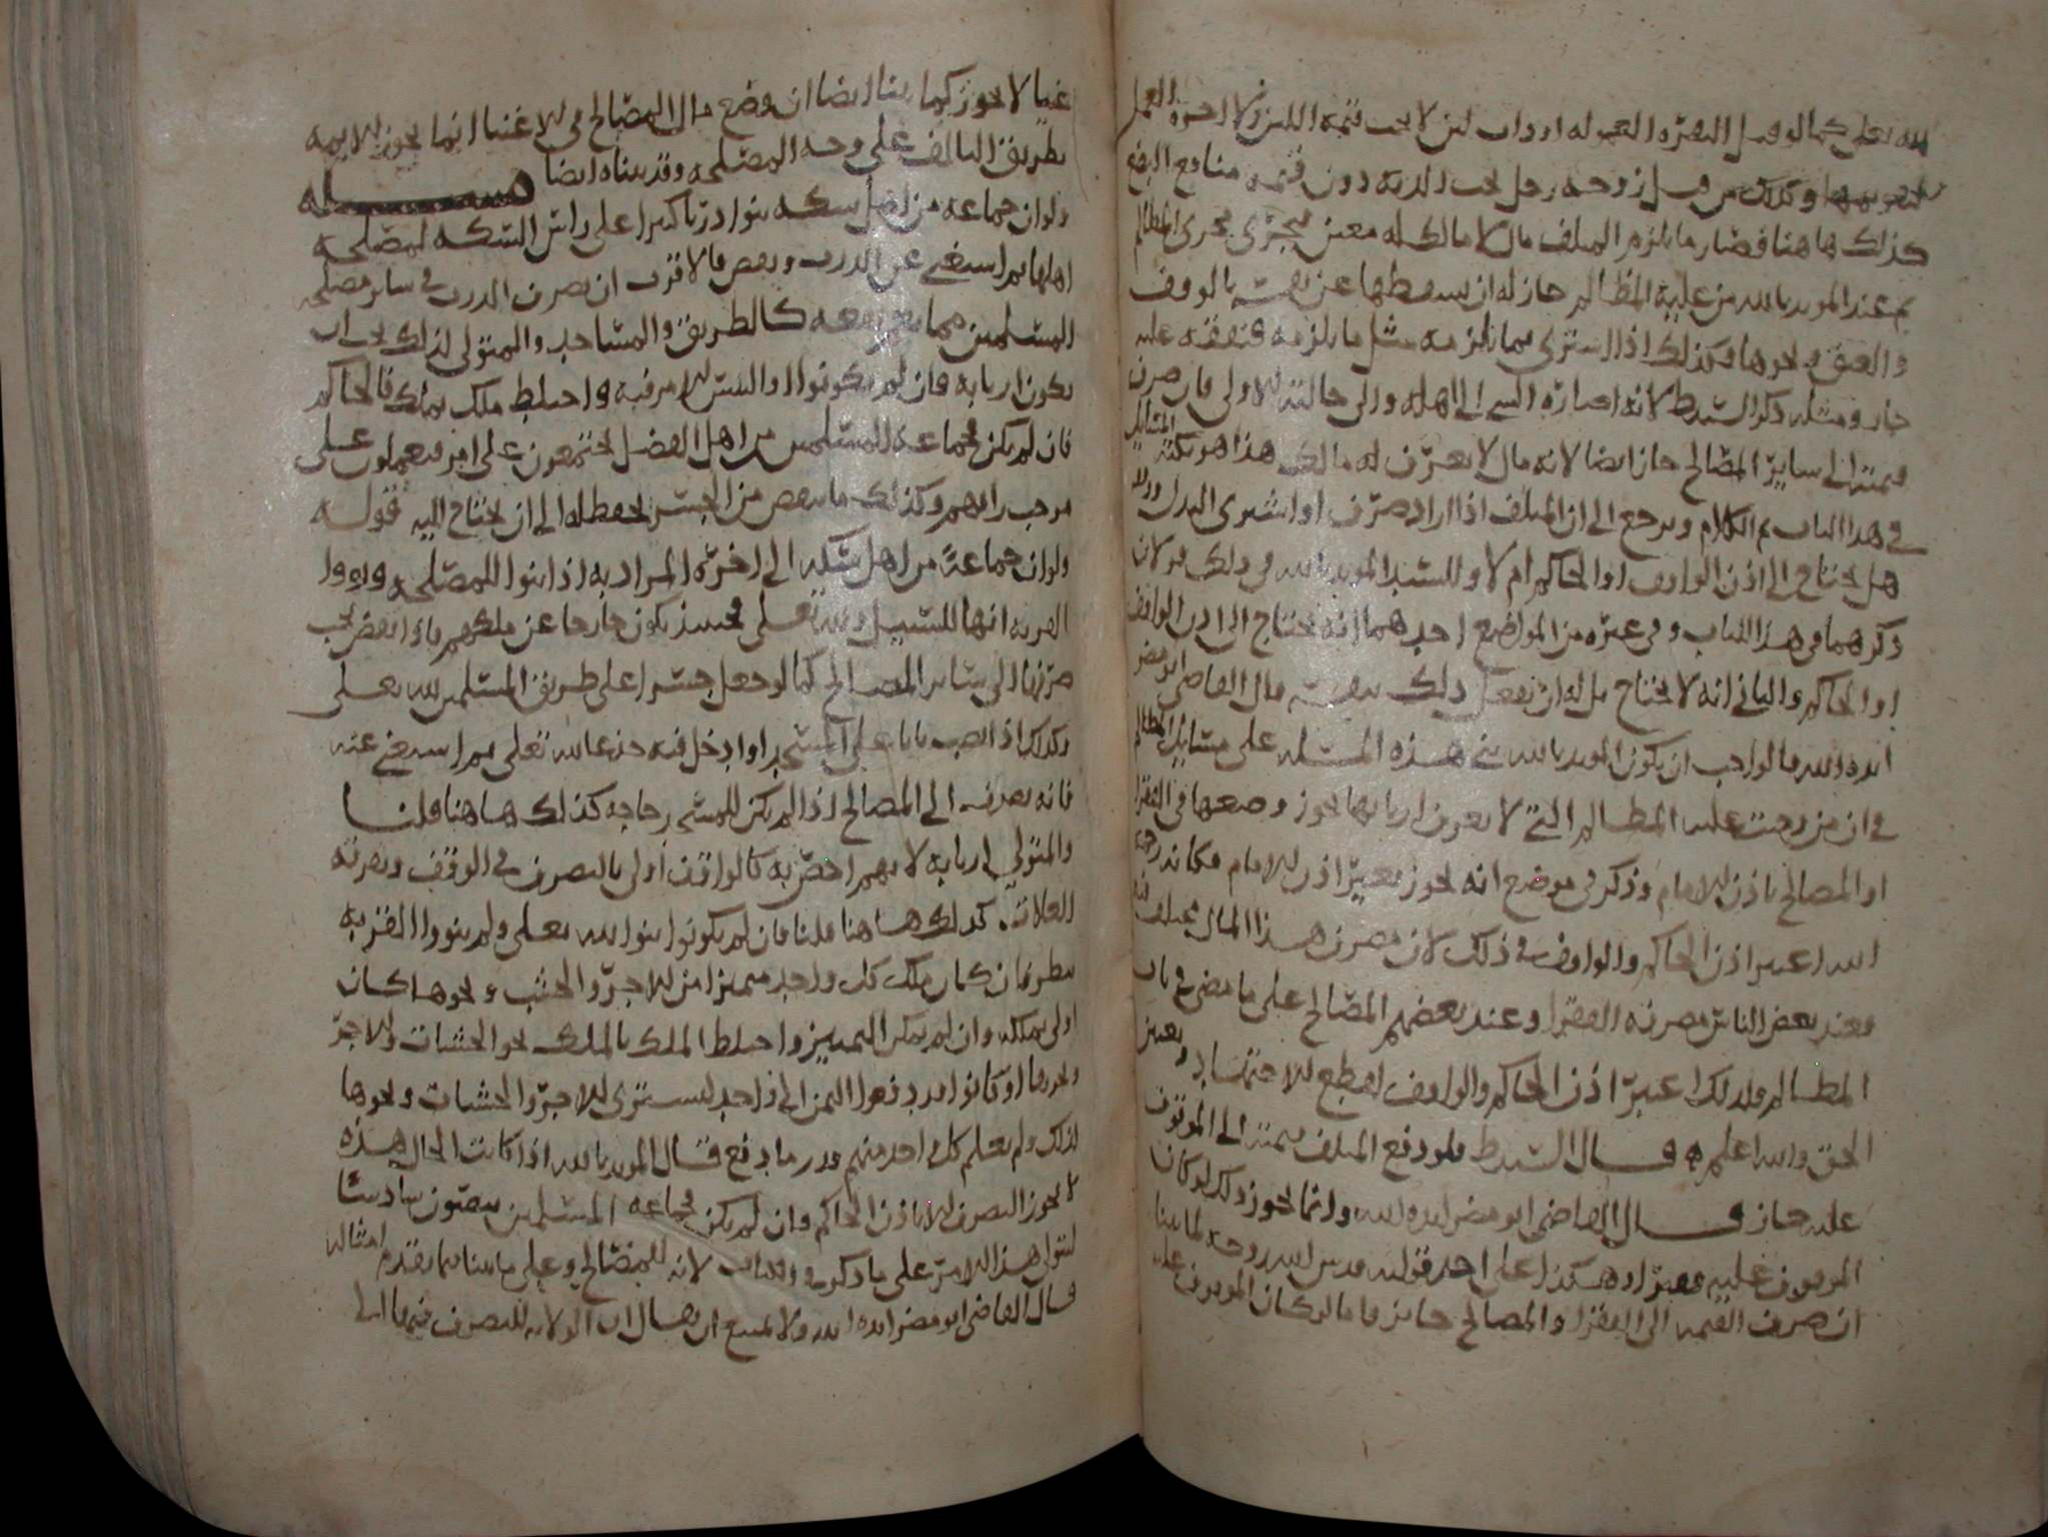 لله تعلى كما لو قتل البقره المعموله او ذات لبن لا يجب قيمه اللبن ولا اجره العمل
وكذلك من قتل زوجه رجل تجب الديه دون قيمه منافع البضع
كذلك هاهنا فصار ما يلزم المتلف مال لا مالك له معين فيجرى مجرى المظالم
ثم عند المويد بالله من عليه المظالم جاز له ان يسقطها عن نفسه بالوقف
والعتق ونحوها وكذلك اذا اشترى بما يلزمه مثل ما يلزمه فيقفه عليه
جاز ومثله ذكر السيد ط لانه اعاره الشي الى اهله والى حالته الاولى فان صرف
قيمته الى ساير المصالح جاز ايضا لانه مال لا يعرف له مالك هذا هو نكته المسايل
في هذا الباب ثم الكلام ويرجع الى ان المتلف اذا اراد صرف او اشترى البدل
هل يحتاج الى اذن الواقف او الحاكم ام لا وللسيد المويد بالله في ذلك قولان
ذكرهما في هذا الكتاب وفي غيره من المواضع احدهما انه يحتاج الى اذن الواقف
او الحاكم والثاني انه لا يحتاج بل له ان يفعل ذلك بنفسه قال القاضي ابو مضر
ايده الله فالواجب ان يكون المويد بالله بنى هذه المسله على مسايل المظالم
في ان من وجبت عليه المظالم التي لا يعرف اربابها يجوز وضعها في الفقرا
او المصالح باذن الامام وذكر في موضع انه يجوز بغير اذن الامام فكانه رحمه
الله اعتبر اذن الحاكم والواقف في ذلك لان مصرف هذا المال مختلف فيه
فعند بعض الناس مصرفه الفقرا وعند بعضهم المصالح على ما مضى في باب
المظالم ولذلك اعتبر اذن الحاكم والواقف لقطع الاجتهاد وتعين
الحق والله اعلم قال السيد ط فلو دفع المتلف قيمته الى الموقوف
عليه جاز قال القاضي ابو مضر ايده الله وانما يجوز ذلك لو كان
الموقوف عليه فقيرا وهكذا على احد قوليه قدس الله روحه لما بينا
ان صرف القيمه الى الفقرا والمصالح جايز فاما لو كان الموقوف عليه
غنيا لا يجوز كما بينا ايضا ان وضع مال المصالح في الاغنيا انما يجوز للايمه
بطريق التالف على وجه المصلحه وقد بيناه ايضا مسله
ولو ان جماعه من اهل سكه بنوا دربا كبيرا على راس السكه لمصلحه
اهلها ثم استغنى عن الدرب ونقض فالاقرب ان يصرف الدرب في ساير مصلحه
المسلمين مما يعم نفعه كالطريق والمساجد والمتولى لذلك يجب ان
يكون اربابه فان لم يكونوا او التبس الامر فيه واختلط ملك بملك فالحاكم
فان لم يكن فجماعه للمسلمين من اهل الفضل يجتمعون على امر فيعملون على
موجب رايهم وكذلك ما ينقص من الجسر يحفظ له الى ان يحتاج اليه قوله
ولو ان جماعة من اهل سكه الى اخره المراد به اذا بنوا للمصلحه ونووا
القربه انها للسبيل لله تعلى فحينئذ يكون خارجا عن ملكهم فاذا نقض يجب
صرفها الى ساير المصالح كما لو جعل جسرا على طريق المسلمين لله تعلى
وكذلك اذا نصب بابا على المسجد او ادخل فيه جذعا لله تعلى ثم استغنى عنه
فانه يصرف الى المصالح اذا لم يكن للمسجد حاجه كذلك هاهنا قلنا
والمتولى اربابه لانهم اخص به كالواقف اولى بالتصرف في الوقف وتفرقه
الغلات كذلك هاهنا قلنا فان لم يكونوا بنوا لله تعلى ولم ينووا القربه
نظر فان كان ملك كل واحد متميزا من الاجر والخشب ونحوها كان
اولى بملكه وان لم يمكن التمييز واختلط الملك بالملك نحو الخشبات والاجر
ونحوها او كانوا قد دفعوا الثمن الى واحد ليشترى الاجر والخشبات ونحوها
لذلك ولم يعلم كل واحد منهم قدر ما دفع قال المويد بالله اذا كانت الحال هذه
لا يجوز التصرف الا باذن الحاكم وان لم يكن فجماعه المسلمين ينصبون
لتولي هذا الامر على ما ذكره لانه للمصالح وعلى ما بينا فيما تقدم امثاله
قال القاضي ابو مضر ايده الله ولا يمتنع ان يقال ان الولايه للتصرف فيها الى